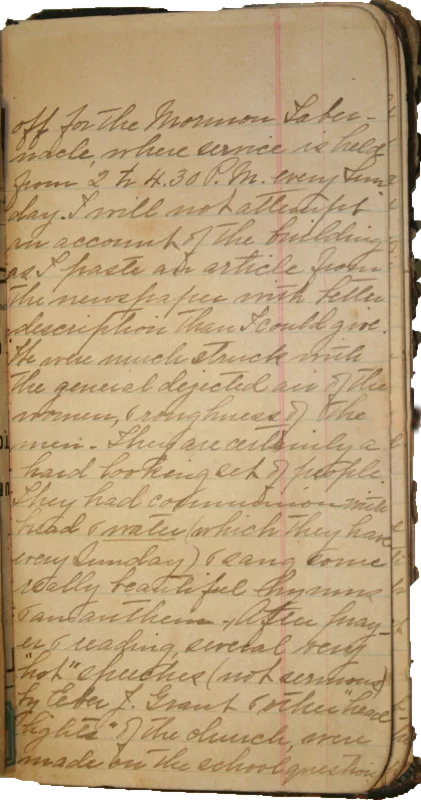 off for the Mormon Taber-
nacle, where service is held
from 2 to 4.30 P.M. every Sun-
day. I will not attempt
an account of the building
as I paste an article from
the newspaper with better
description than I could give.
We were much struck with
the general dejected air of the
women, & roughness of the
men - They are certainly a
hard looking set of people.
They had communion with
bread & water (which they have
every Sunday) & sang some
really beautiful hymns
& an anthem. After pray-
er & reading, several very
"hot" speeches (not sermons)
by Eber J. Grant & other "head
lights" of the church, were
made on the school question